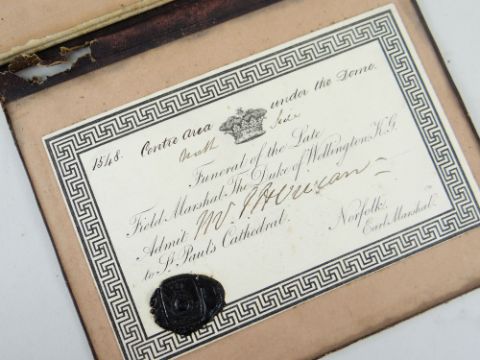 1548. Centre area under the Dome.
North Side
Funeral of the Late
Field Marshal The Duke of Wellington K.G.
Admit
to St. Pauls Cathedral.
Norfolk.
Earl Marshal.